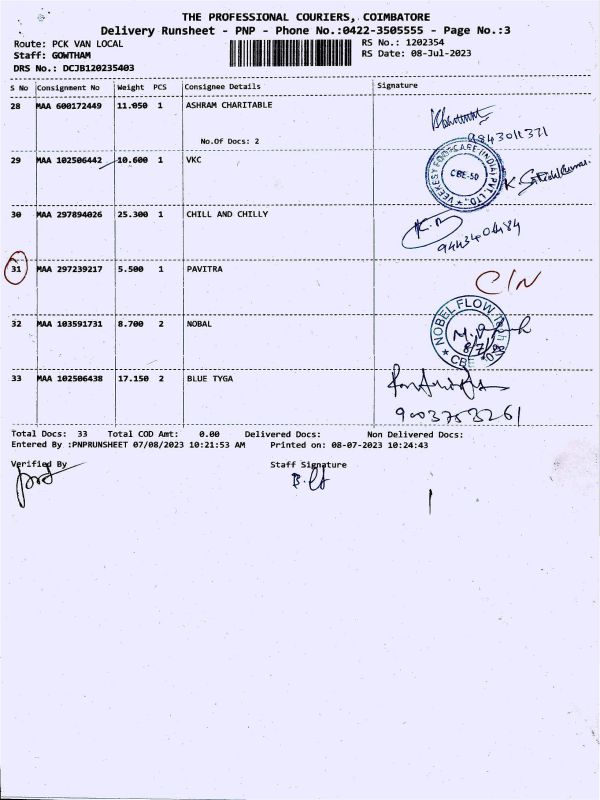 THE PROFESSIONAL COURIERS, COIMBATORE
Delivery Runsheet - PNP - Phone No.:0422-3505555 - Page No.:3
Route: PCK VAN LOCAL RS No.: 1202354
Staff: GOWTHAM RS Date: 08-Jul-2023
DRS No.: DCJB120235403
S No Consignment No Weight PCS Consignee Details Signature
28 MAA 600172449 11.050 1 ASHRAM CHARITABLE
9843011371
No.Of Docs: 2
29 MAA 102506442 10.600 1 VKC
VEEKESY FOOTCARE (INDIA) PVT. LTD. ★ CBE-50
30 MAA 297894026 25.300 1 CHILL AND CHILLY
31 MAA 297239217 5.500 1 PAVITRA C/N
32 MAA 103591731 8.700 2 NOBAL
NOBEL FLOW
33 MAA 102506438 17.150 2 BLUE TYGA
9003753261
Total Docs: 33 Total COD Amt: 0.00 Delivered Docs: Non Delivered Docs:
Entered By :PNPRUNSHEET 07/08/2023 10:21:53 AM Printed on: 08-07-2023 10:24:43
Verified By Staff Signature